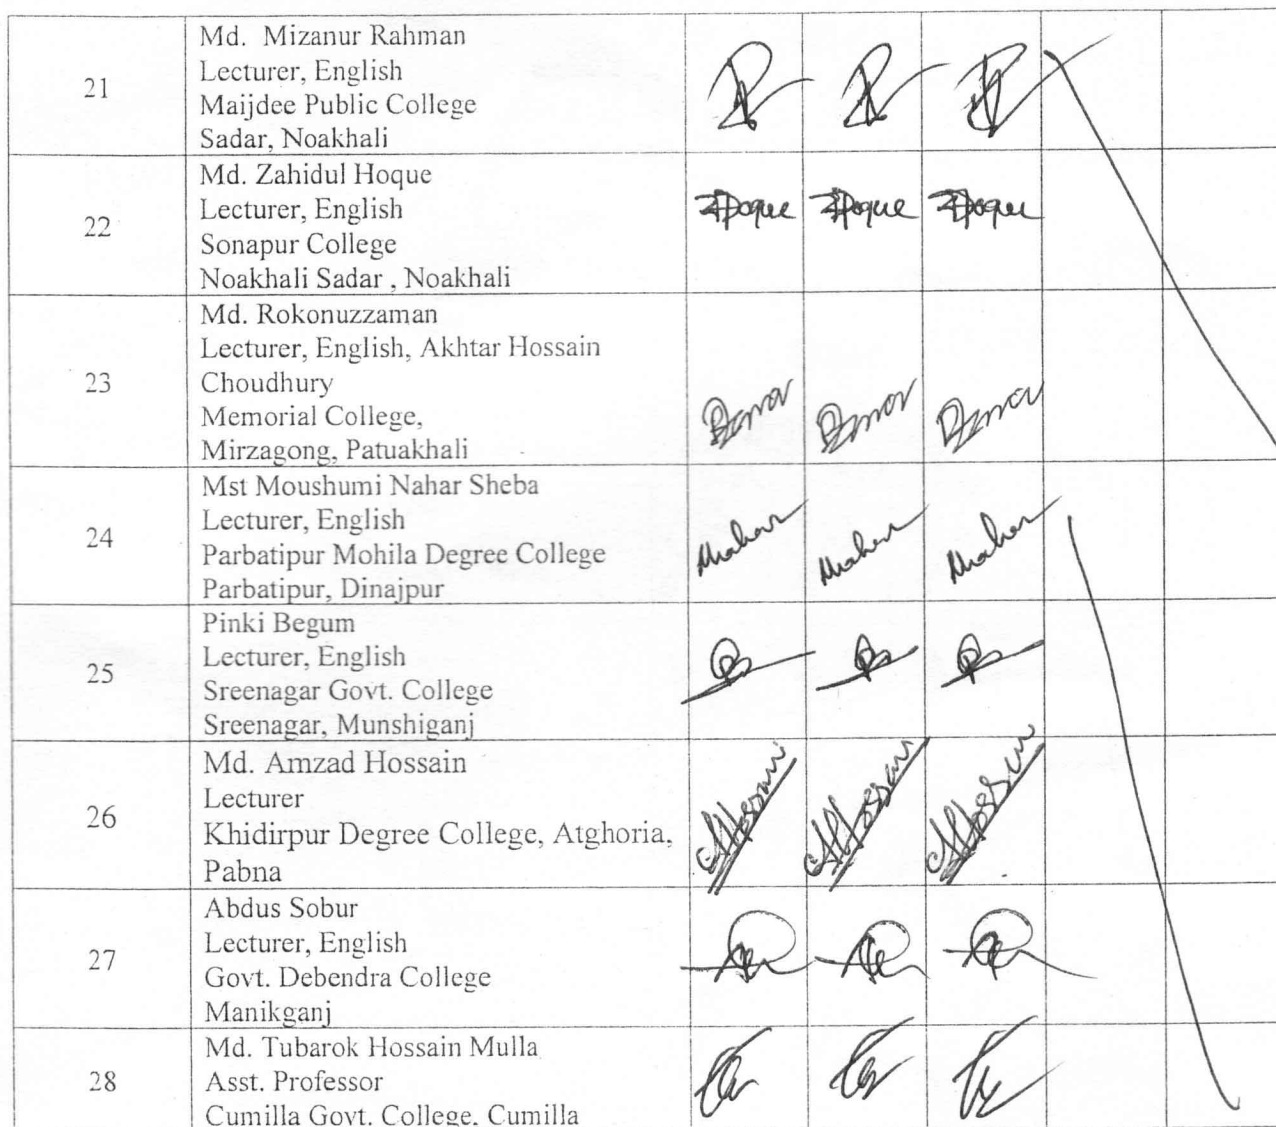 21
Md. Mizanur Rahman
Lecturer, English
Maijdee Public College
Sadar, Noakhali
22
Md. Zahidul Hoque
Lecturer, English
Sonapur College
Noakhali Sadar , Noakhali
ZHoque ZHoque ZHoque
23
Md. Rokonuzzaman
Lecturer, English, Akhtar Hossain
Choudhury
Memorial College,
Mirzagong, Patuakhali
24
Mst Moushumi Nahar Sheba
Lecturer, English
Parbatipur Mohila Degree College
Parbatipur, Dinajpur
Nahar Nahar Nahar
25
Pinki Begum
Lecturer, English
Sreenagar Govt. College
Sreenagar, Munshiganj
26
Md. Amzad Hossain
Lecturer
Khidirpur Degree College, Atghoria,
Pabna
AHossain AHossain AHossain
27
Abdus Sobur
Lecturer, English
Govt. Debendra College
Manikganj
28
Md. Tubarok Hossain Mulla
Asst. Professor
Cumilla Govt. College, Cumilla